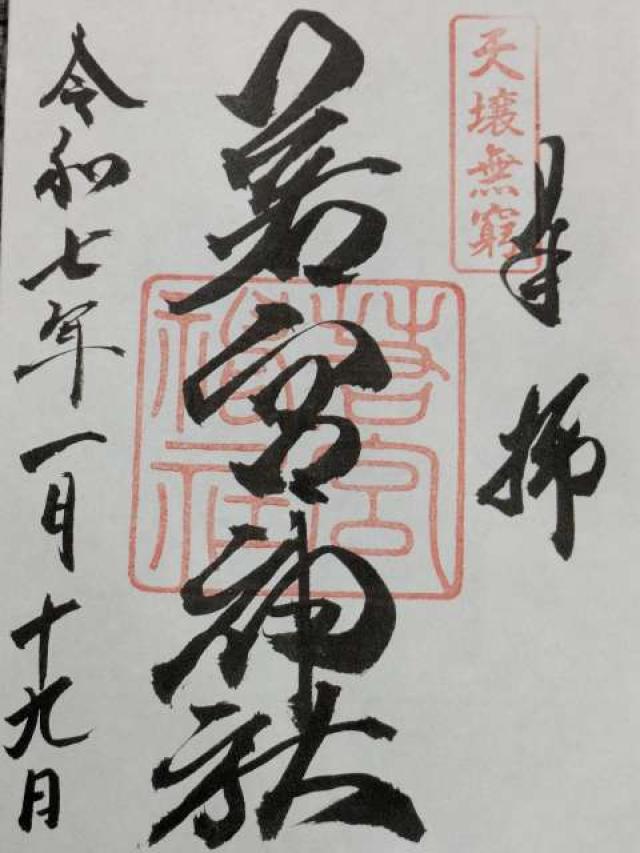 天壌無窮
奉拝
若宮神社
若宮神社
令和七年一月十九日